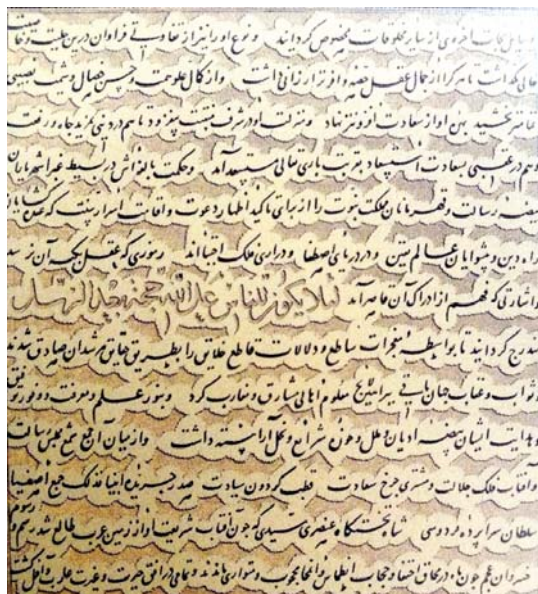 وسایل نجات اخروی از سایر مخلوقات مخصوص گردانید و نوع او را نیز از تفاوتی فراوان درین
حالی نگذاشت تا هر کرا از جمال عقل حصه وافرتر ارزانی داشت و از کمال علو همت و حسن خصال و شیمت نصیبی
کاملتر بخشید بهرهٔ او از سعادت افزونتر نهاد و منزلت او در شرف بیشتر بیفزود تا هم در دنیی بمزید جاه و رفعت
و هم در عقبی بسعادت استسعاد بقربت باری تعالی مستسعد آمد و حکمت بالغه اش در بسیط غبرا شهریاران
بیضهٔ رسالت و قهرمانان مملکت نبوت را از برای تأکید اظهار دعوت و افاضت اسرار
راه دین و پیشوایان عالم متین و درر دریای اصطفا و دراری فلک اجتبااند رموزی که عقل بکنه آن نرسد
و اشارتی که فهم از ادراک آن قاصر آید لئلا یکون للناس علی الله حجة بعد الرسل
مندرج گردانید تا بواسطهٔ معجزات ساطع و دلالات قاطع خلایق را بطریق حقایق مرشدان صادق شدند
و ثواب و عقاب جهان باقی معلوم اهالی مشارق و مغارب کرد و بنور علم و معرفت و وفور توفیق
و هدایت ایشان بیضهٔ ادیان و ملل و متون شرایع و نحل آراسته داشت و از میان آن جمع شمع مجلس رسالت
و آفتاب فلک جلالت و مشتری چرخ سعادت قطب گردون سیادت صدر جریدهٔ انبیا فذلک جمع اصفیا
سلطان سراپرده فردوسی شاه تختگاه عنصری سیدی که چون آفتاب شریعت او از زمین عرب طالع شد رسوم
خسروان عجم چون ماه در محاق اختفا و حجاب انطماس و انمحا محجوب و متواری ماندند و تمامی در افق حیرت و غیرت